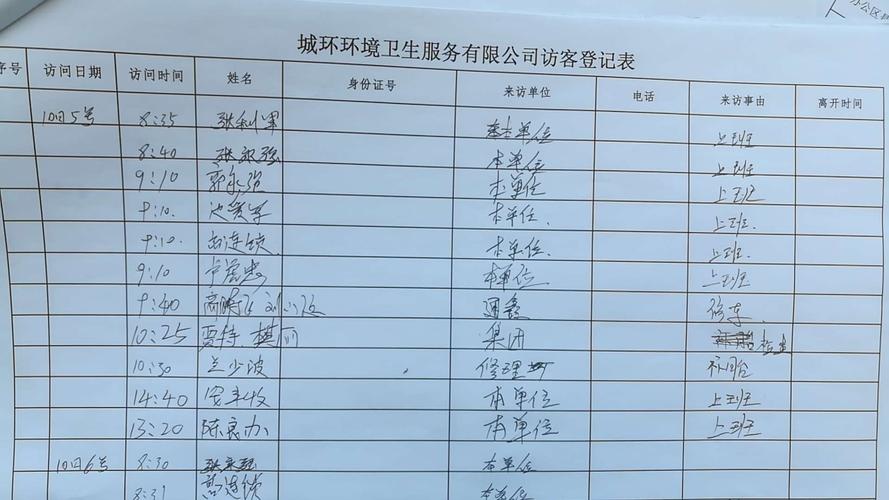 办公区
城环环境卫生服务有限公司访客登记表
序号 访问日期 访问时间 姓名 身份证号 来访单位 电话 来访事由 离开时间
10月5号 8:35 张利军 本单位 上班
8:40 张永强 本单位 上班
9:10 郭永强 本单位 上班
9:10. 本单位. 上班.
9:10. 连锁. 本单位. 上班.
9:10 本单位. 上班
9:40 通鑫 修车.
10:25 贾特. 集团 检查
10:30 兰少波 修理
14:40 安丰收 本单位 上班
13:20 陈良办 本单位 上班
10月6号 8:30 张永强 本单位
8:31 连锁 本单位